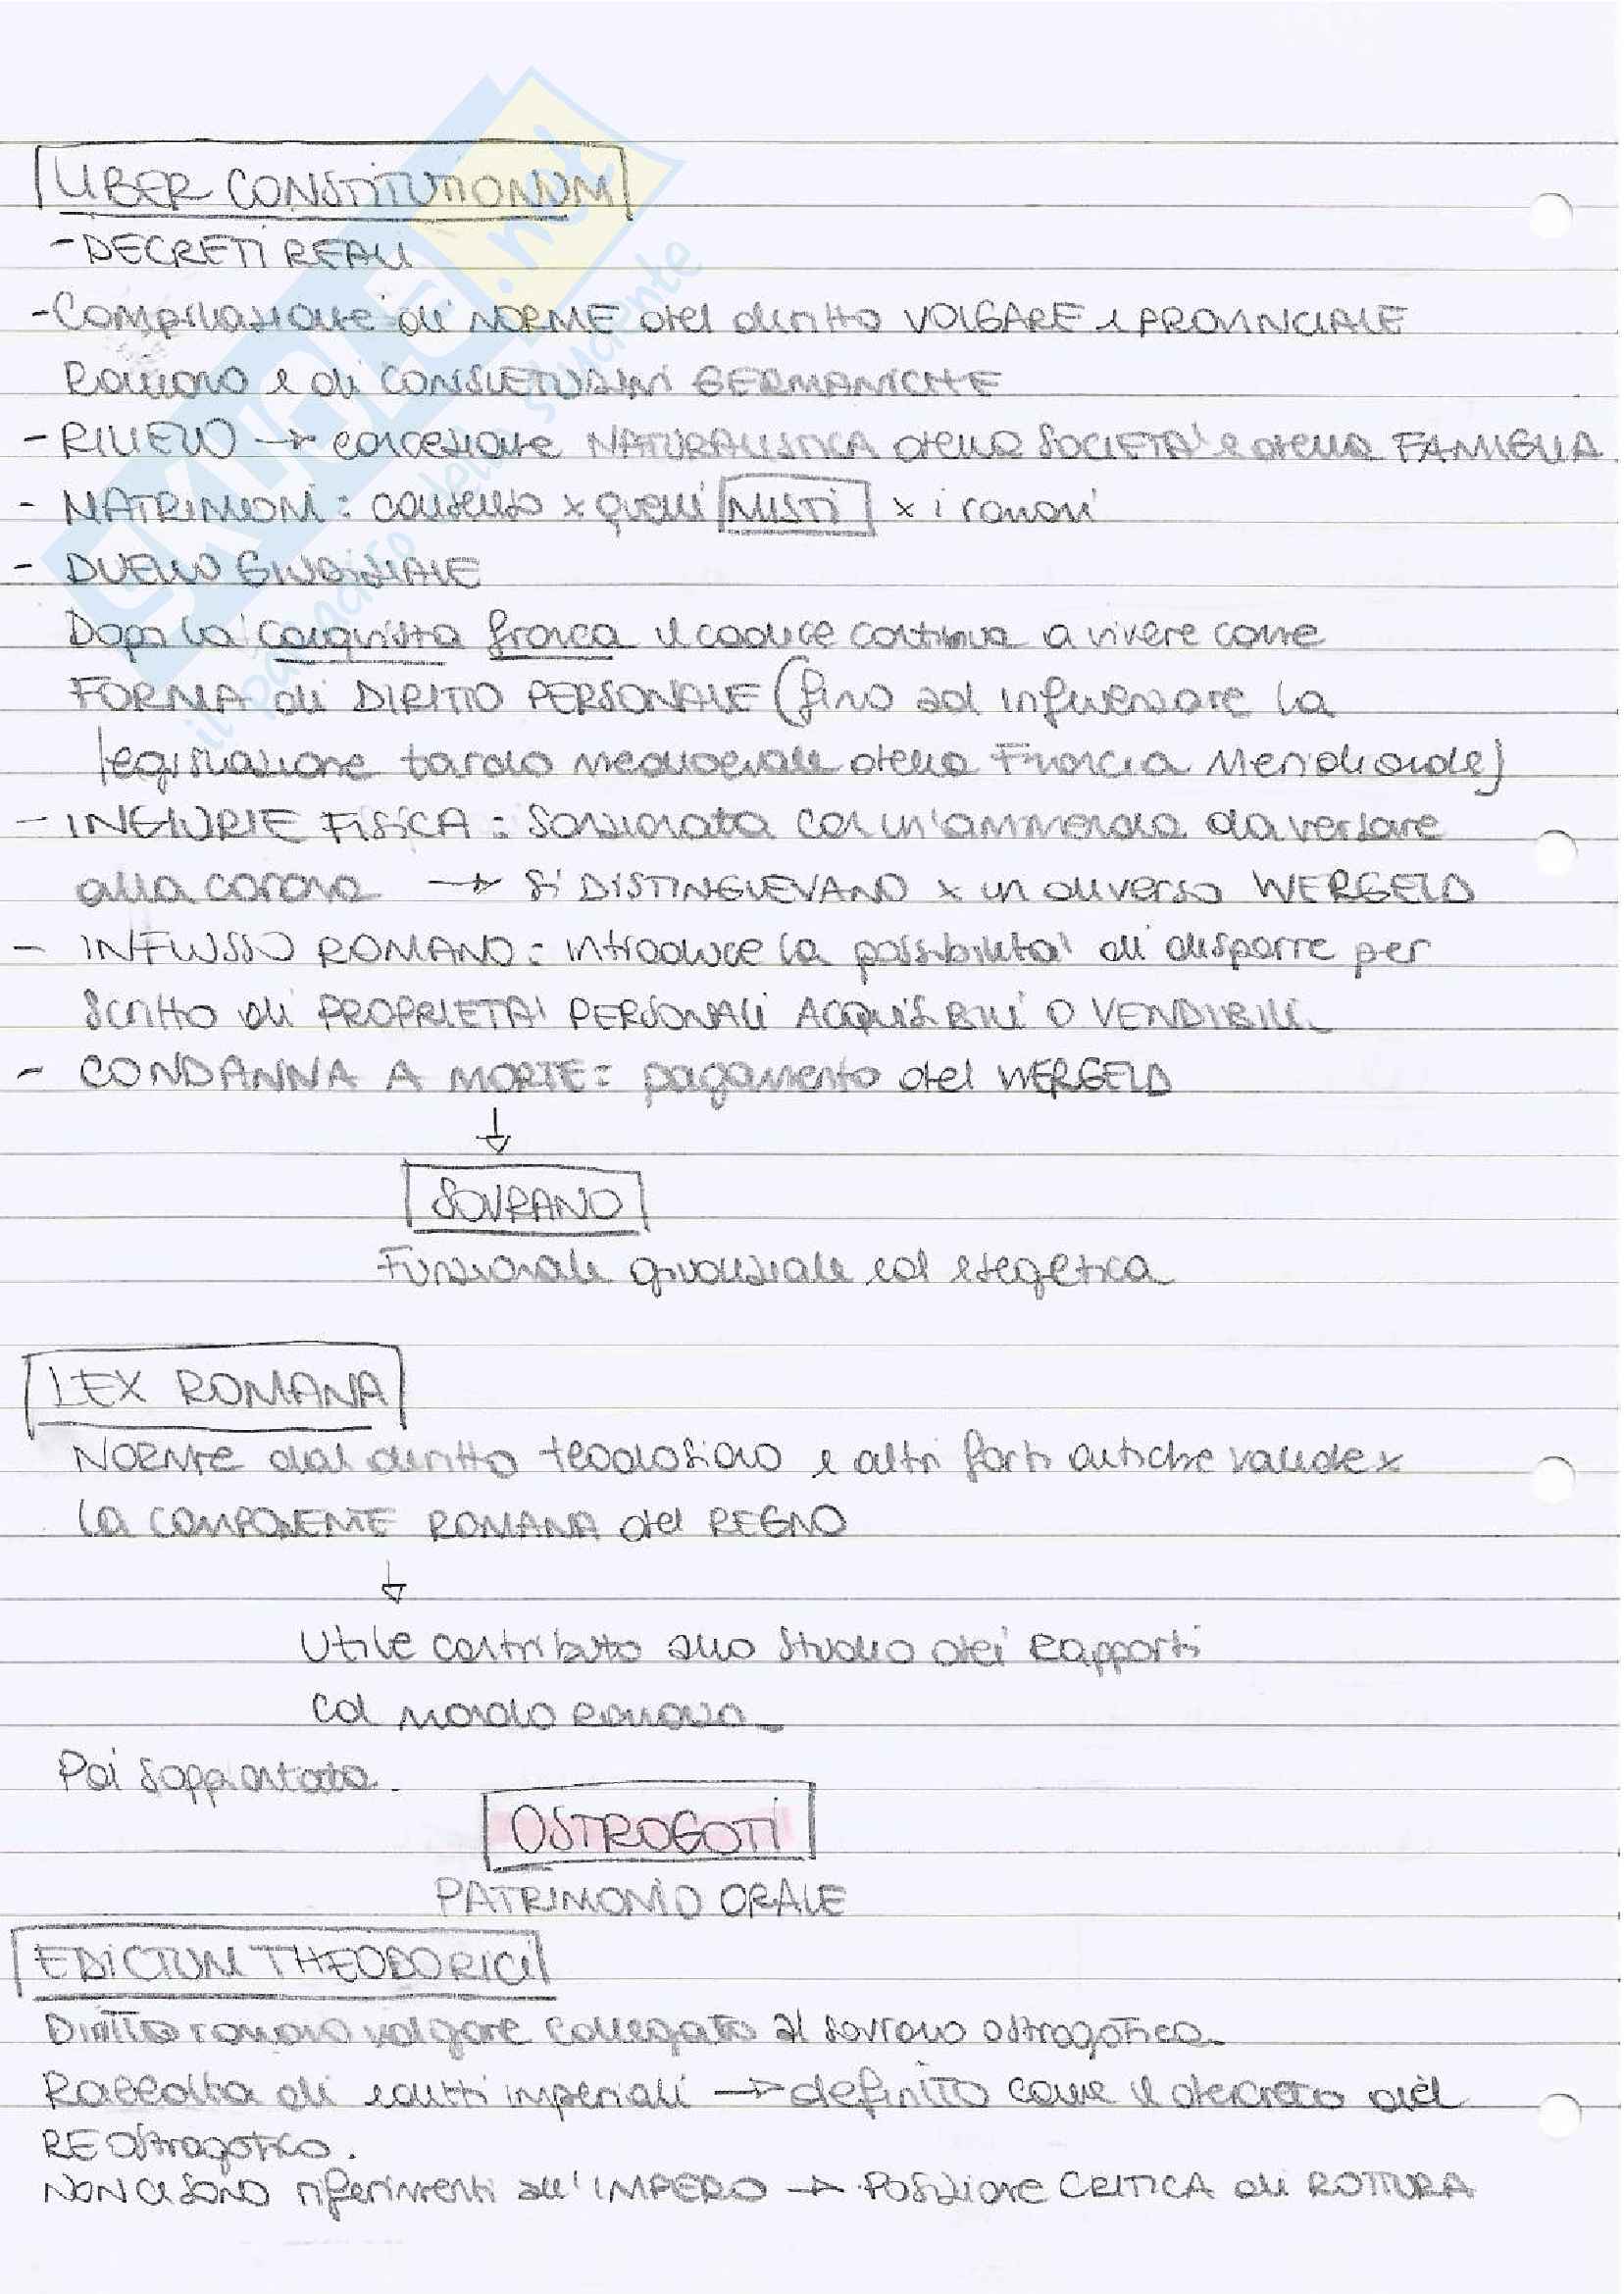 LIBER CONSTITUTIONUM
- DECRETI REALI
- Compilazione di NORME del diritto VOLGARE e PROVINCIALE
Romano e di CONSUETUDINI GERMANICHE
- RILIEVO → concezione NATURALISTICA della SOCIETA' e della FAMIGLIA.
- MATRIMONI: consenso x quelli MISTI x i romani
- DUELLO GIUDIZIALE
Dopo la conquista franca il codice continua a vivere come
FORMA di DIRITTO PERSONALE (fino ad influenzare la
legislazione tardo medioevale della Francia Meridionale)
- INGIURIE FISICA: Sanzionata con un'ammenda da versare
alla corona → si DISTINGUEVANO x un diverso WERGELD
- INFLUSSO ROMANO: introduce la possibilita' di disporre per
scritto di PROPRIETA' PERSONALI ACQUISIBILI O VENDIBILI
- CONDANNA A MORTE: pagamento del WERGELD
↓
SOVRANO
Funzionale giudiziale ed esegetica
LEX ROMANA
Norme dal diritto teodosiano e altri fonti antiche valide x
la COMPONENTE ROMANA del REGNO
↓
Utile contributo allo studio dei Rapporti
col mondo romano.
Poi soppiantata.
OSTROGOTI
PATRIMONIO ORALE
EDICTUM THEODORICI
Diritto romano volgare collegato al sovrano ostrogotico.
Raccolta di editti imperiali → definito come il decreto del
RE Ostrogotico.
NON CI SONO riferimenti all'IMPERO → POSIZIONE CRITICA di ROTTURA
SKUOLA.net
il paradiso dello studente